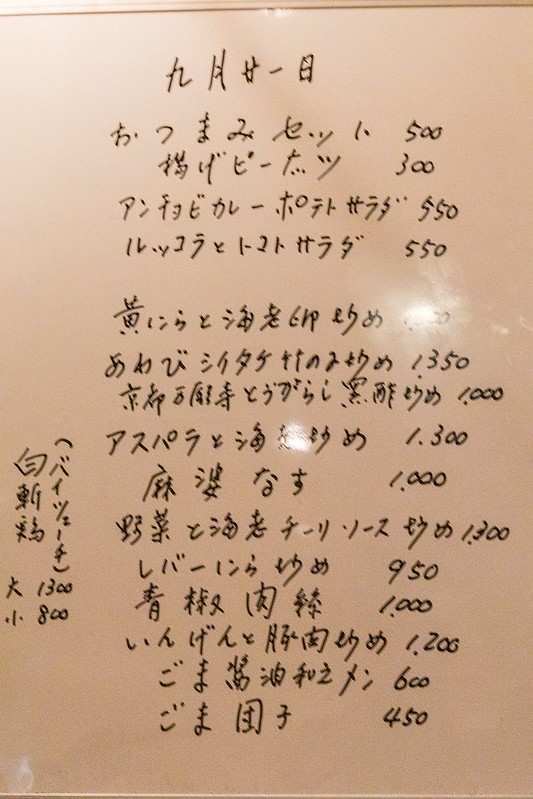 九月廿一日
おつまみセット 500
揚げピーナッツ 300
アンチョビカレーポテトサラダ 550
ルッコラとトマトサラダ 550
黄にらと海老卵炒め
あわびシイタケ竹の子炒め 1.350
京都万願寺とうがらし黒酢炒め 1.000
アスパラと海老炒め 1.300
麻婆なす 1.000
野菜と海老チーリソース炒め 1.300
レバーにら炒め 950
青椒肉絲 1.000
いんげんと豚肉炒め 1.200
ごま醤油和えメン 600
ごま団子 450
白斬鶏
(バイツェーチ)
大 1300
小 800